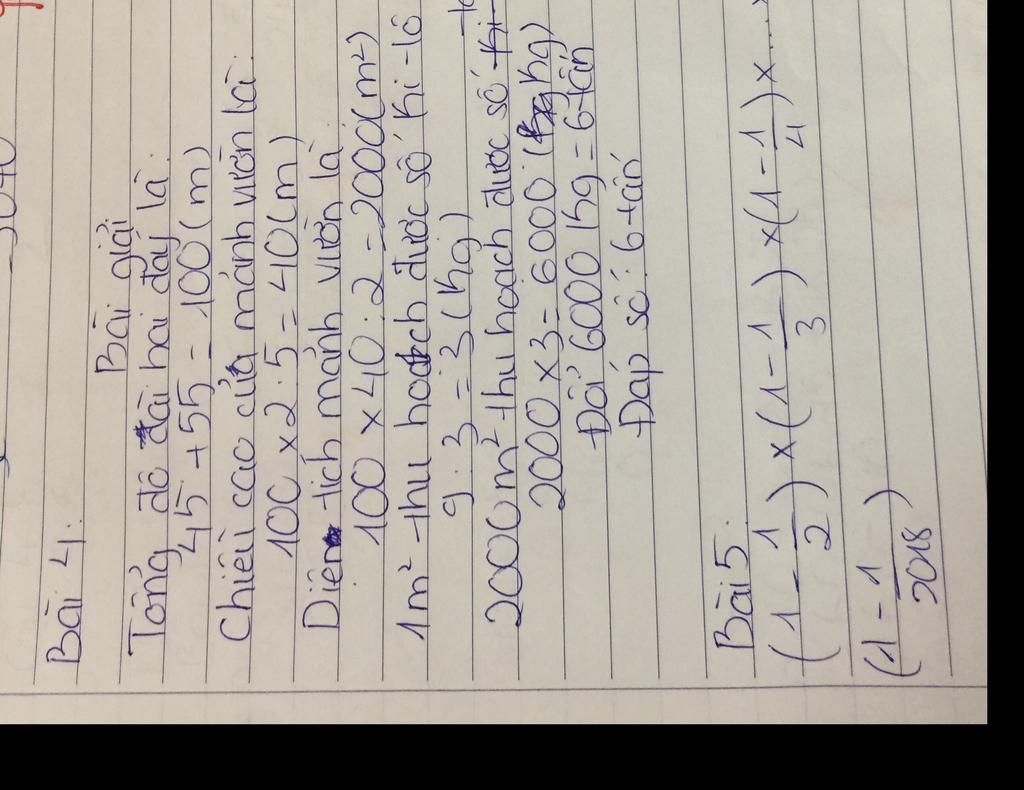 Bài 4:
Bài giải
Tổng độ dài hai đáy là:
45 + 55 = 100 (m)
Chiều cao của mảnh vườn là:
100 x 2 : 5 = 40 (m)
Diện tích mảnh vườn là
100 x 40 : 2 = 2000 (m²)
1m² thu hoạch được số ki-lô
9 : 3 = 3 (kg)
2000m² thu hoạch được số ki-
2000 x 3 = 6000 (kg)
Đổi 6000 kg = 6 tấn
Đáp số: 6 tấn
Bài 5:
(1 - 1/2) x (1 - 1/3) x (1 - 1/4) x ...
(1 - 1/2018)